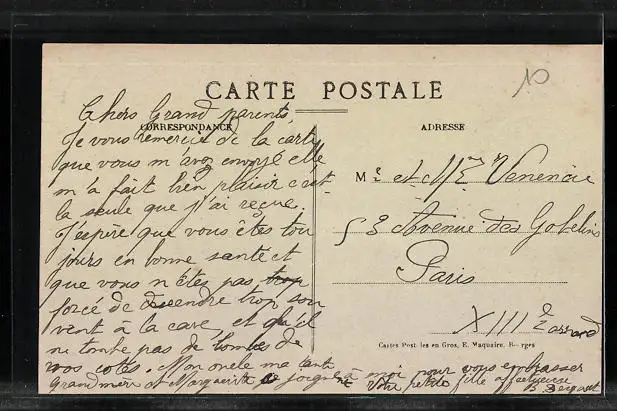 10
CARTE POSTALE
CORRESPONDANCE
ADRESSE
Chers Grand parents,
Je vous remercie de la carte
que vous m'avez envoyé elle
m'à fait bien plaisir c'est
la seule que j'ai reçue.
J'espère que vous êtes tou
jours en bonne santé et
que vous n'êtes pas trop
forcé de descendre trop sou
vent à la cave, et qu'il
ne tombe pas de bombes de
vos cotés. Mon oncle ma tante
grandmère et Marguerite se joignent à moi pour vous embrasser
Votre petite fille affectueuse
Mr et Mme
53 Avenue des Gobelins
Paris
XIIIe
Cartes Postales en Gros, E. Maquaire, Bourges